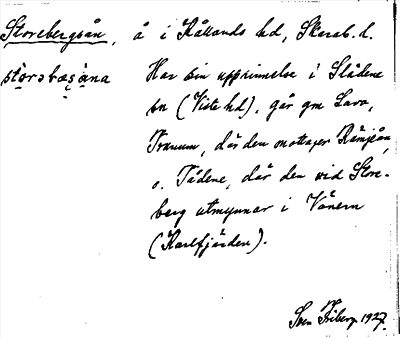 Storebergsån, å i Kållands hd, Skarab. l.
stòrəbæs̨ àna Har sin upprinnelse i Slädene
sn (Viste hd), går gm Lava,
Tranum, där den mottager Rämjån,
o. Tådene, där den vid Store-
berg utmynnar i Vänern
(Karlfjärden).
Sven Friberg 1927.